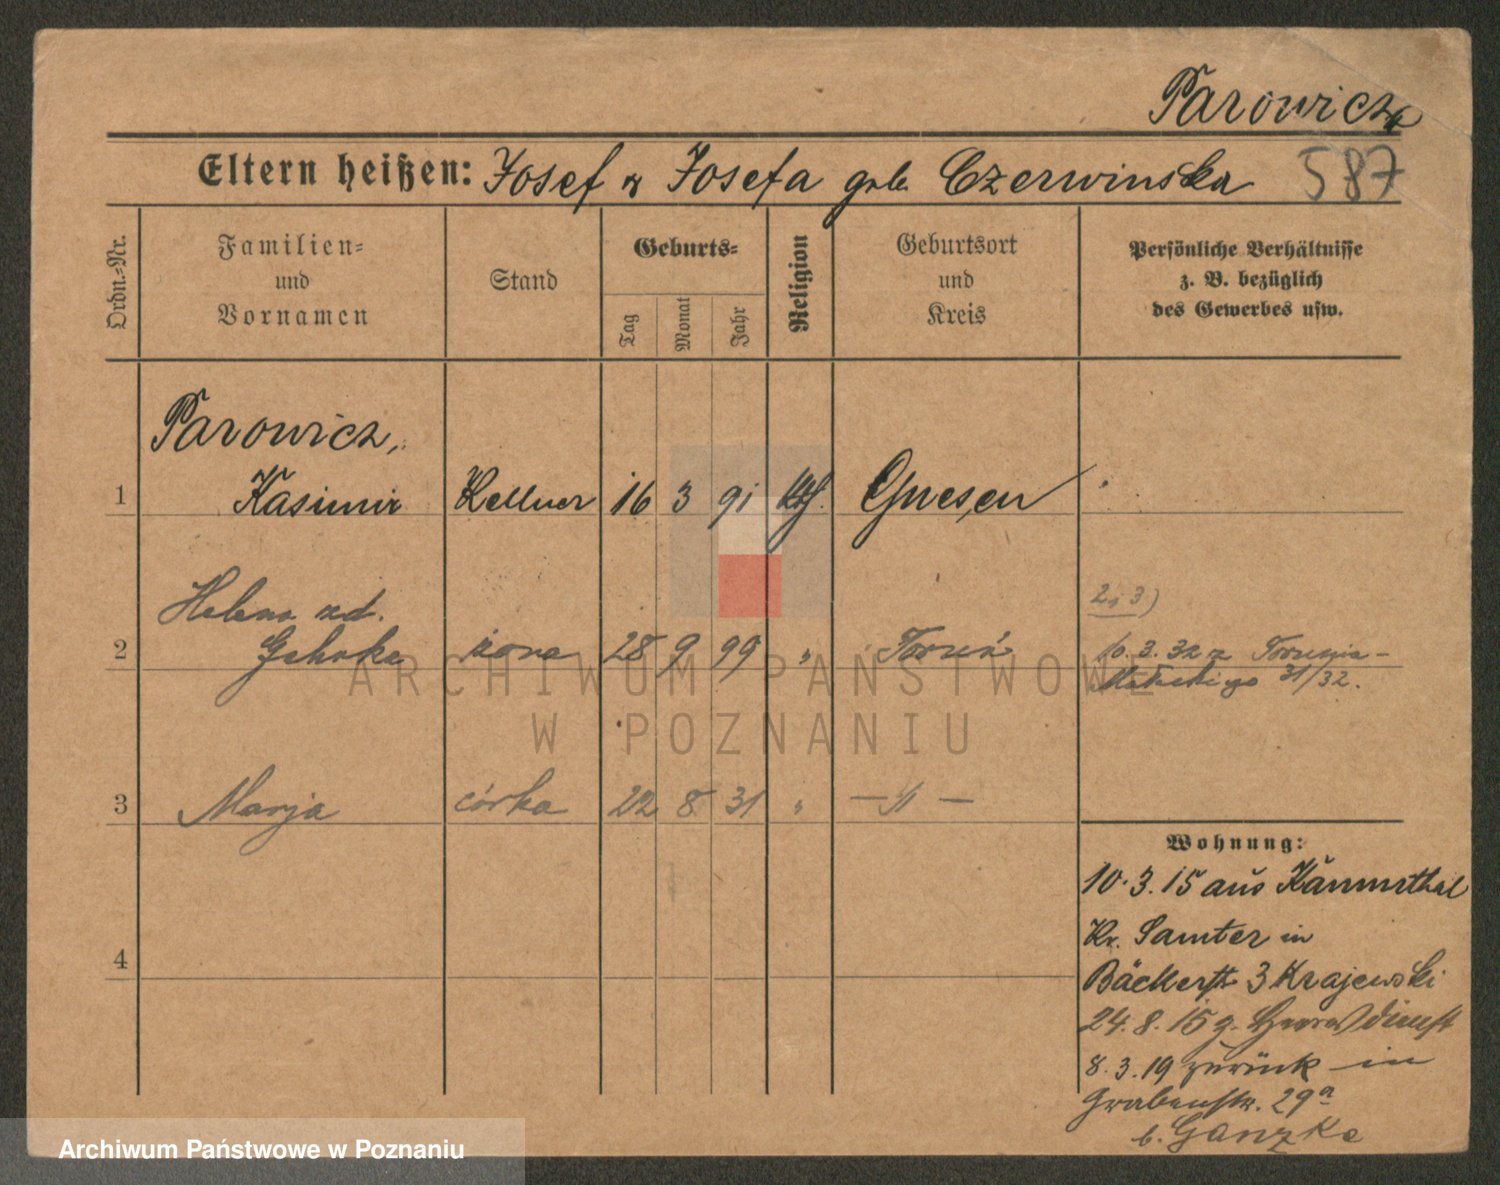 Parowicz
Eltern heißen: Josef u Josefa geb. Czerwinska 587
Ordn.-Nr.
Familien-
und
Vornamen
Stand
Geburts-
Tag
Monat
Jahr
Religion
Geburtsort
und
Kreis
Persönliche Verhältnisse
z. B. bezüglich
des Gewerbes usw.
Parowicz,
1 Kasimir Kellner 16 3 91 kth. Gnesen
Helena zd.
2 żona 28 9 99 " Toruń
2 i 3)
10.3.32 z Torunia -
31/32.
3 Marja córka 22 8 31 " — " —
4
Wohnung:
10.3.15 aus
Kr. Samter in
Bäckerstr 3 Krajewski
24.8.15 z. Heeresdienst
8.3.19 zurück in
Grabenstr. 29a
b. Ganzke
ARCHIWUM PAŃSTWOWE
W POZNANIU
Archiwum Państwowe w Poznaniu